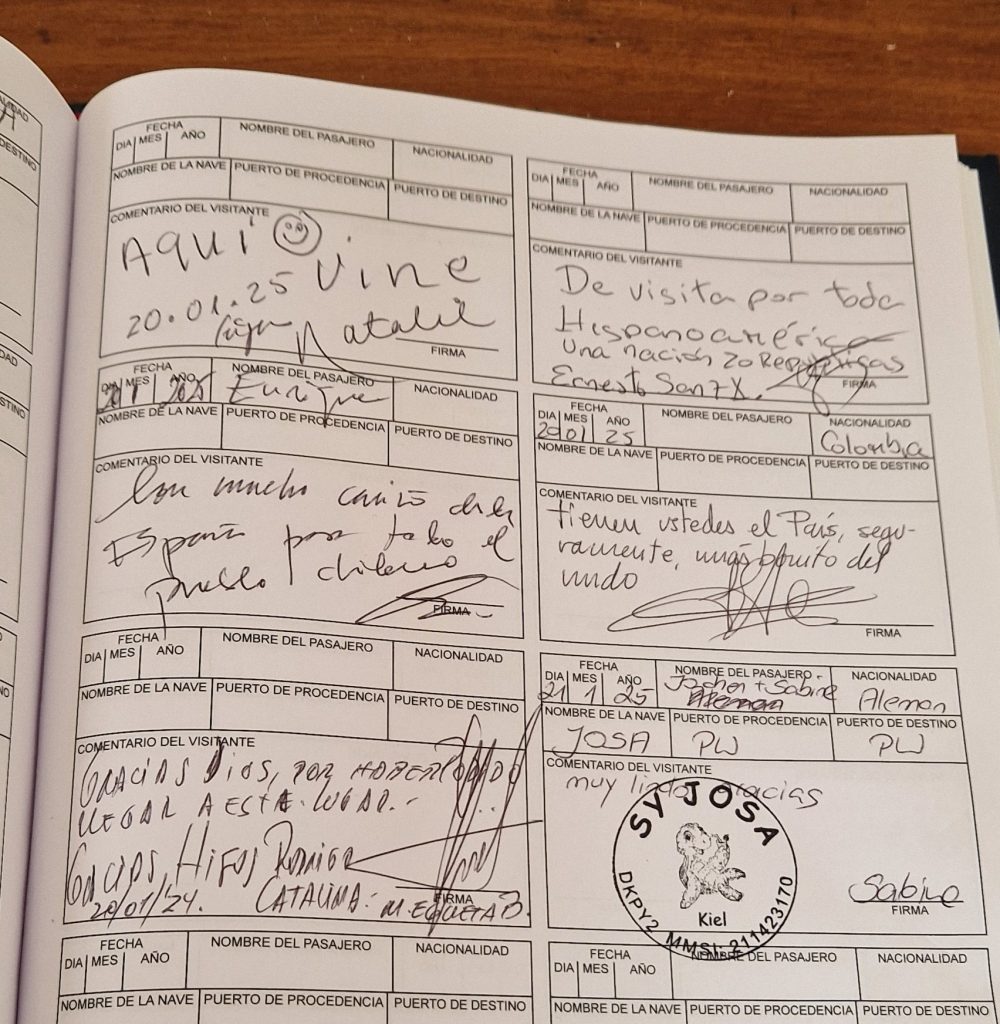 FECHA
DIA MES AÑO
NOMBRE DEL PASAJERO
NACIONALIDAD
NOMBRE DE LA NAVE
PUERTO DE PROCEDENCIA
PUERTO DE DESTINO
COMENTARIO DEL VISITANTE
AQUÍ
Vine
20.01.25
Natalie
FIRMA
FECHA
DIA MES AÑO
20 1 2025
NOMBRE DEL PASAJERO
Enrique
NACIONALIDAD
NOMBRE DE LA NAVE
PUERTO DE PROCEDENCIA
PUERTO DE DESTINO
COMENTARIO DEL VISITANTE
Con mucho cariño desde
España para todo el
pueblo chileno
FIRMA
FECHA
DIA MES AÑO
NOMBRE DEL PASAJERO
NACIONALIDAD
NOMBRE DE LA NAVE
PUERTO DE PROCEDENCIA
PUERTO DE DESTINO
COMENTARIO DEL VISITANTE
GRACIAS DIOS, POR HABER PODIDO
LLEGAR A ESTE LUGAR.-
GRACIAS, HIJOS RODRIGO
20/01/24. CATALINA:
FIRMA
FECHA
DIA MES AÑO
NOMBRE DEL PASAJERO
NACIONALIDAD
NOMBRE DE LA NAVE
PUERTO DE PROCEDENCIA
PUERTO DE DESTINO
FECHA
DIA MES AÑO
NOMBRE DEL PASAJERO
NACIONALIDAD
NOMBRE DE LA NAVE
PUERTO DE PROCEDENCIA
PUERTO DE DESTINO
COMENTARIO DEL VISITANTE
De visita por toda
Hispanoamérica
Una nación 20 Repúblicas
Ernesto Sanz X.
FIRMA
FECHA
DIA MES AÑO
20 01 25
NOMBRE DEL PASAJERO
NACIONALIDAD
Colombia
NOMBRE DE LA NAVE
PUERTO DE PROCEDENCIA
PUERTO DE DESTINO
COMENTARIO DEL VISITANTE
tienen ustedes el País, segu-
ramente, mas bonito del
mundo
FIRMA
FECHA
DIA MES AÑO
21 1 25
NOMBRE DEL PASAJERO
Jochen + Sabine
Aleman
NACIONALIDAD
Aleman
NOMBRE DE LA NAVE
JOSA
PUERTO DE PROCEDENCIA
PW
PUERTO DE DESTINO
PW
COMENTARIO DEL VISITANTE
muy lindo gracias
SY JOSA
Kiel
DKPY2 MMSI: 211423170
Sabine
FIRMA
FECHA
DIA MES AÑO
NOMBRE DEL PASAJERO
NACIONALIDAD
NOMBRE DE LA NAVE
PUERTO DE PROCEDENCIA
PUERTO DE DESTINO